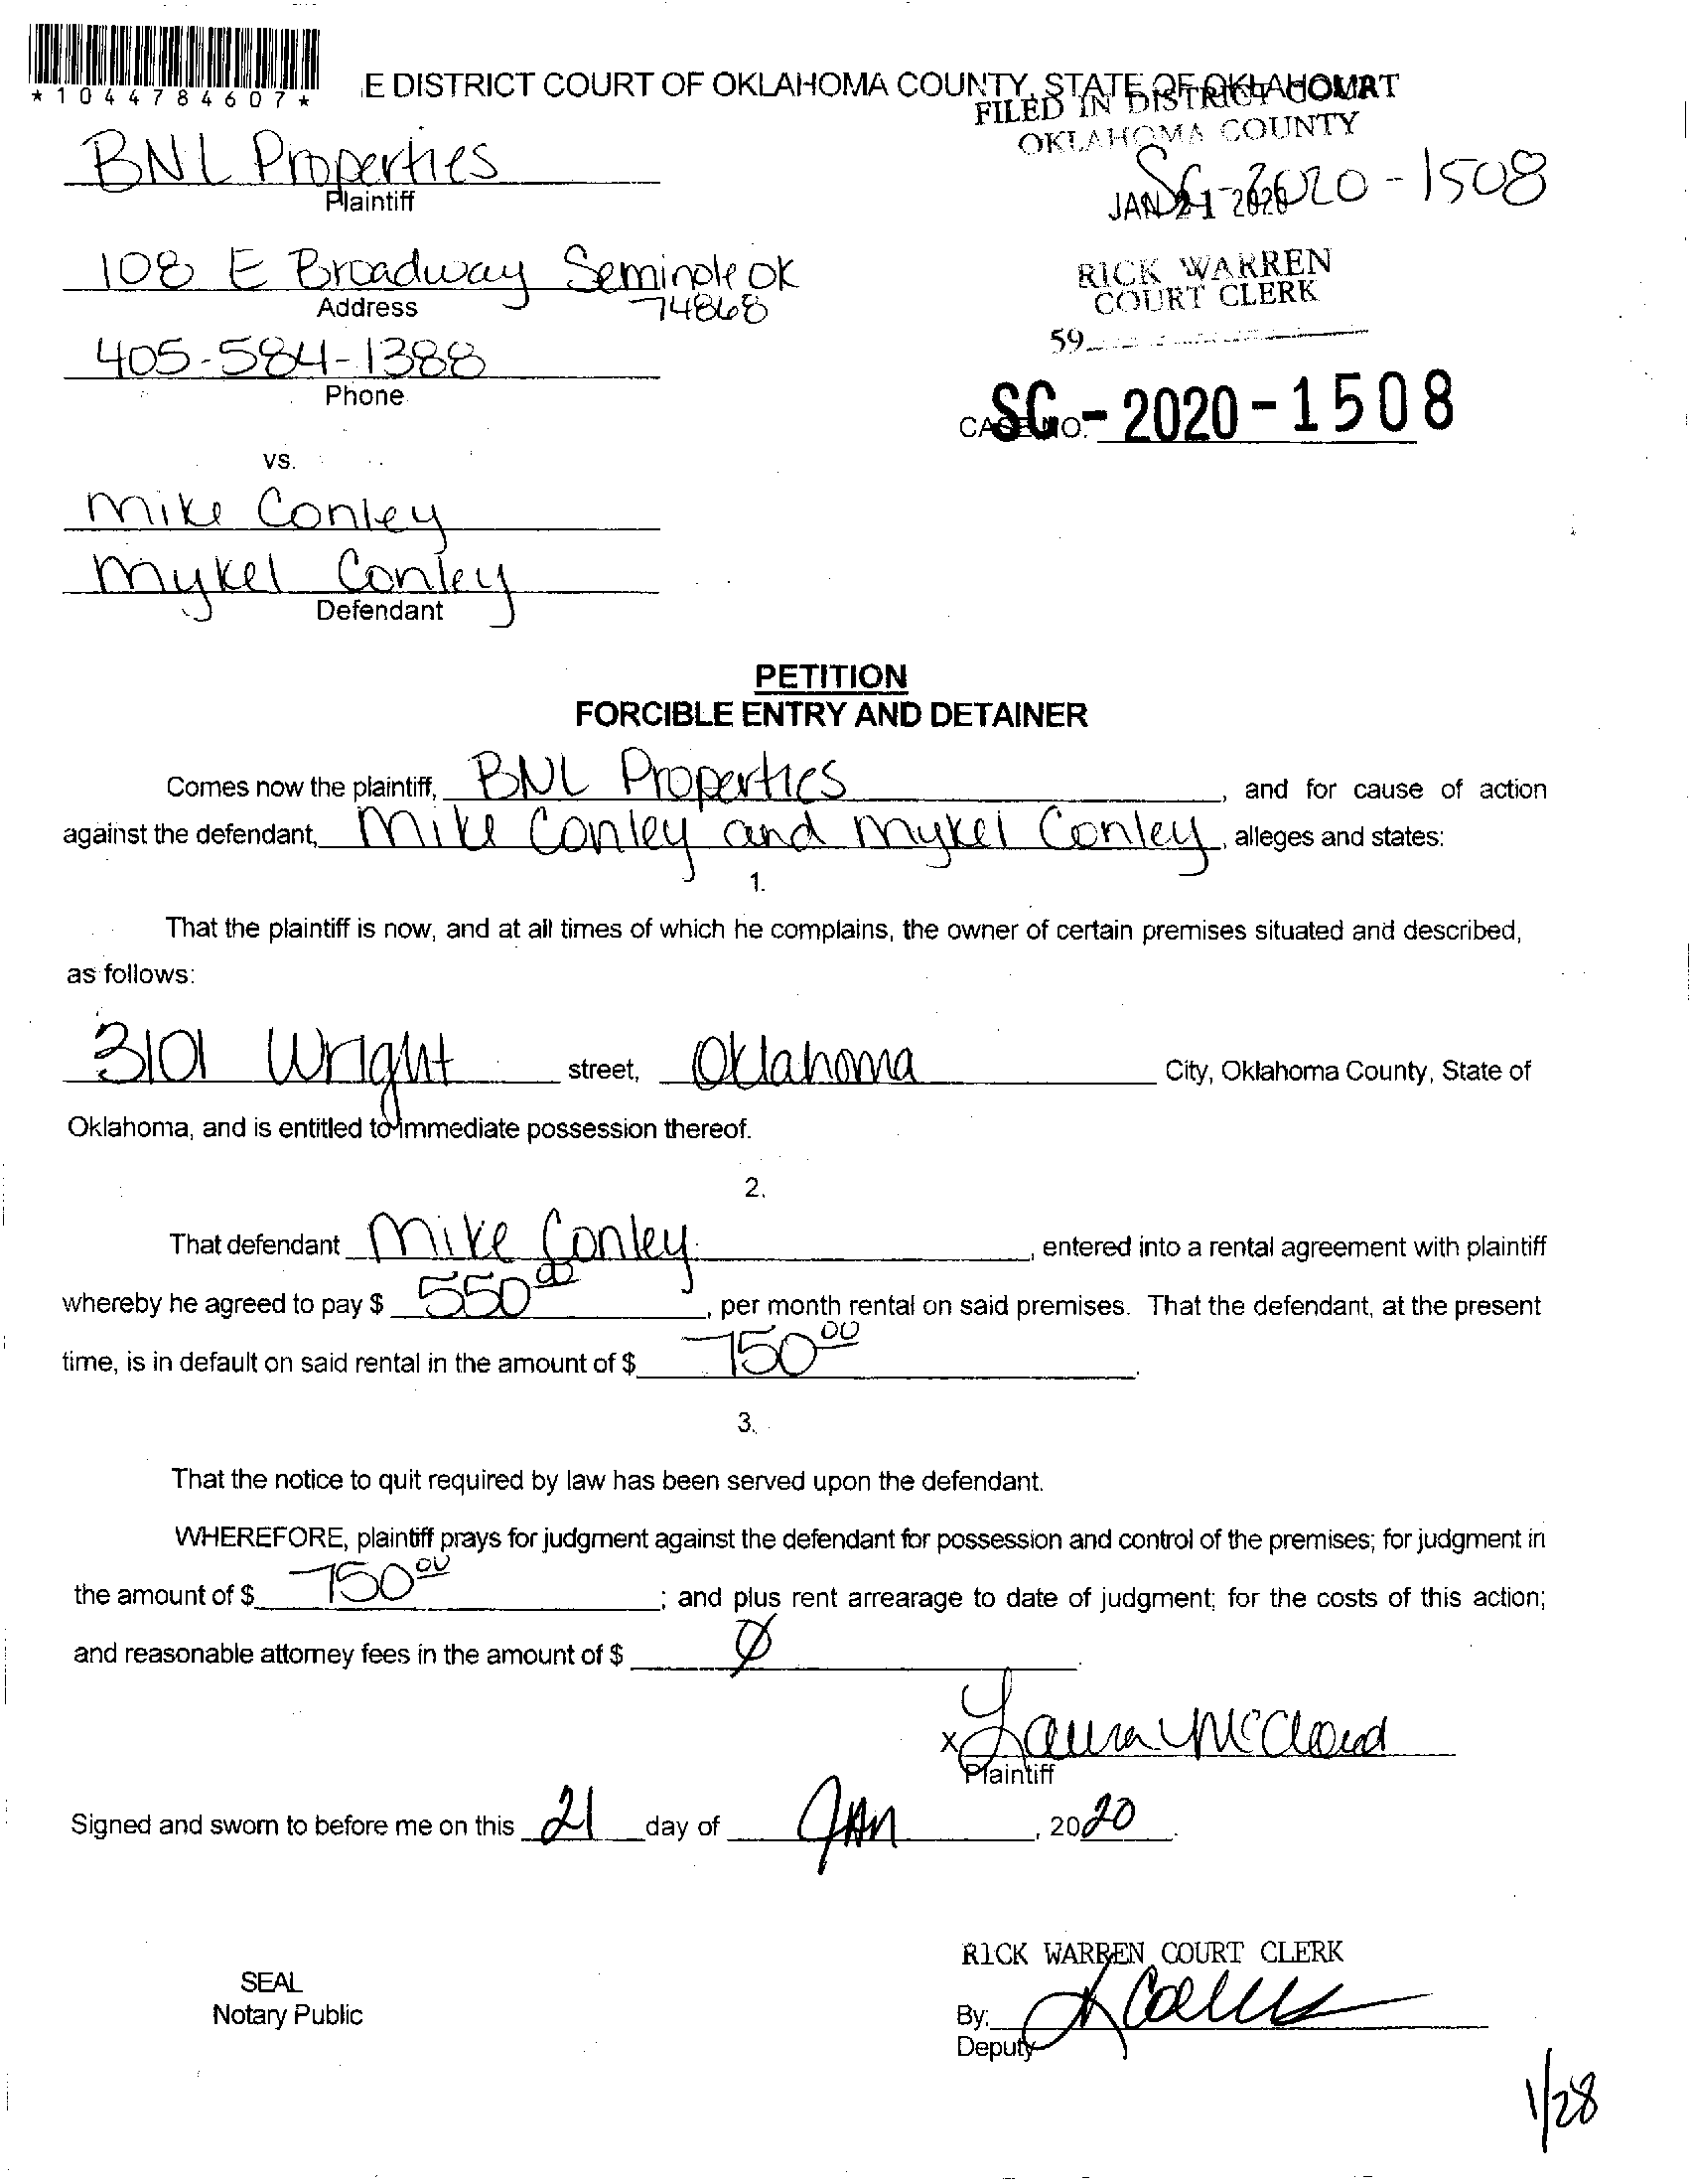 *1044784607*
E DISTRICT COURT OF OKLAHOMA COUNTY, STATE OF OKLAHOMA
FILED IN DISTRICT COURT
OKLAHOMA COUNTY
BNL Properties
Plaintiff
SC-2020-1508
JAN 21 2020
108 E Broadway Seminole OK
74868
Address
RICK WARREN
COURT CLERK
59
405-584-1388
Phone
CASE NO. SC-2020-1508
vs.
Mike Conley
Mykel Conley
Defendant
PETITION
FORCIBLE ENTRY AND DETAINER
Comes now the plaintiff, BNL Properties, and for cause of action
against the defendant, Mike Conley and Mykel Conley, alleges and states:
1.
That the plaintiff is now, and at all times of which he complains, the owner of certain premises situated and described,
as follows:
3101 Wright street, Oklahoma City, Oklahoma County, State of
Oklahoma, and is entitled to immediate possession thereof.
2.
That defendant Mike Conley, entered into a rental agreement with plaintiff
whereby he agreed to pay $ 550.00, per month rental on said premises. That the defendant, at the present
time, is in default on said rental in the amount of $ 750.00.
3.
That the notice to quit required by law has been served upon the defendant.
WHEREFORE, plaintiff prays for judgment against the defendant for possession and control of the premises; for judgment in
the amount of $ 750.00; and plus rent arrearage to date of judgment; for the costs of this action;
and reasonable attorney fees in the amount of $ Ø.
x Laura McCloud
Plaintiff
Signed and sworn to before me on this 21 day of JAN, 2020.
RICK WARREN COURT CLERK
SEAL
Notary Public
By:
Deputy
1/28